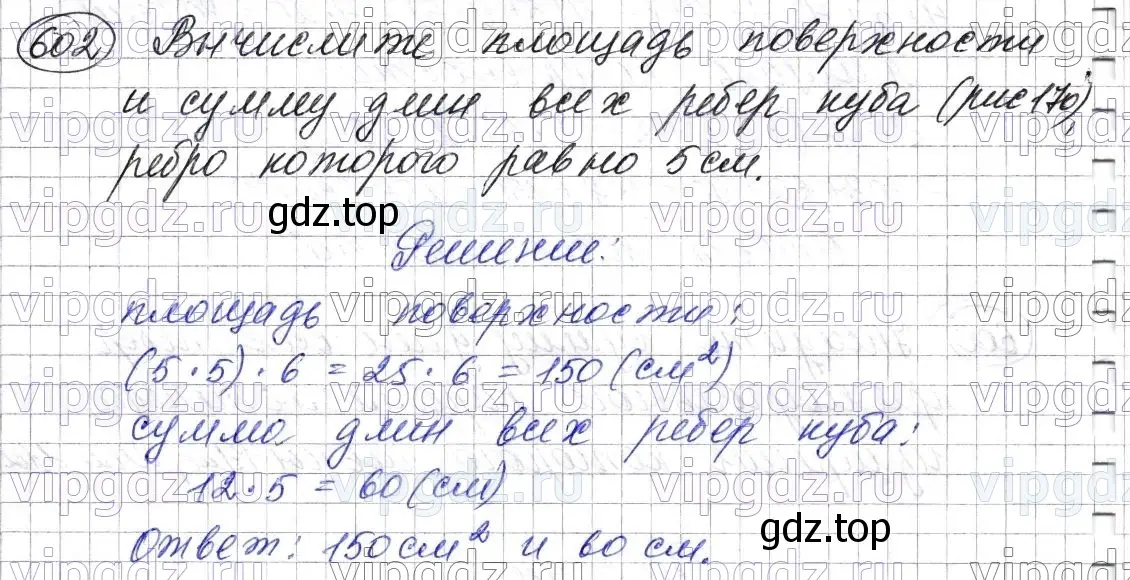 602 Вычислите площадь поверхности
и сумму длин всех ребер куба (рис 170),
ребро которого равно 5 см.
gdz.top
Решение:
площадь поверхности:
(5 · 5) · 6 = 25 · 6 = 150 (см²)
сумма длин всех ребер куба:
12 · 5 = 60 (см)
Ответ: 150 см² и 60 см.
gdz.top